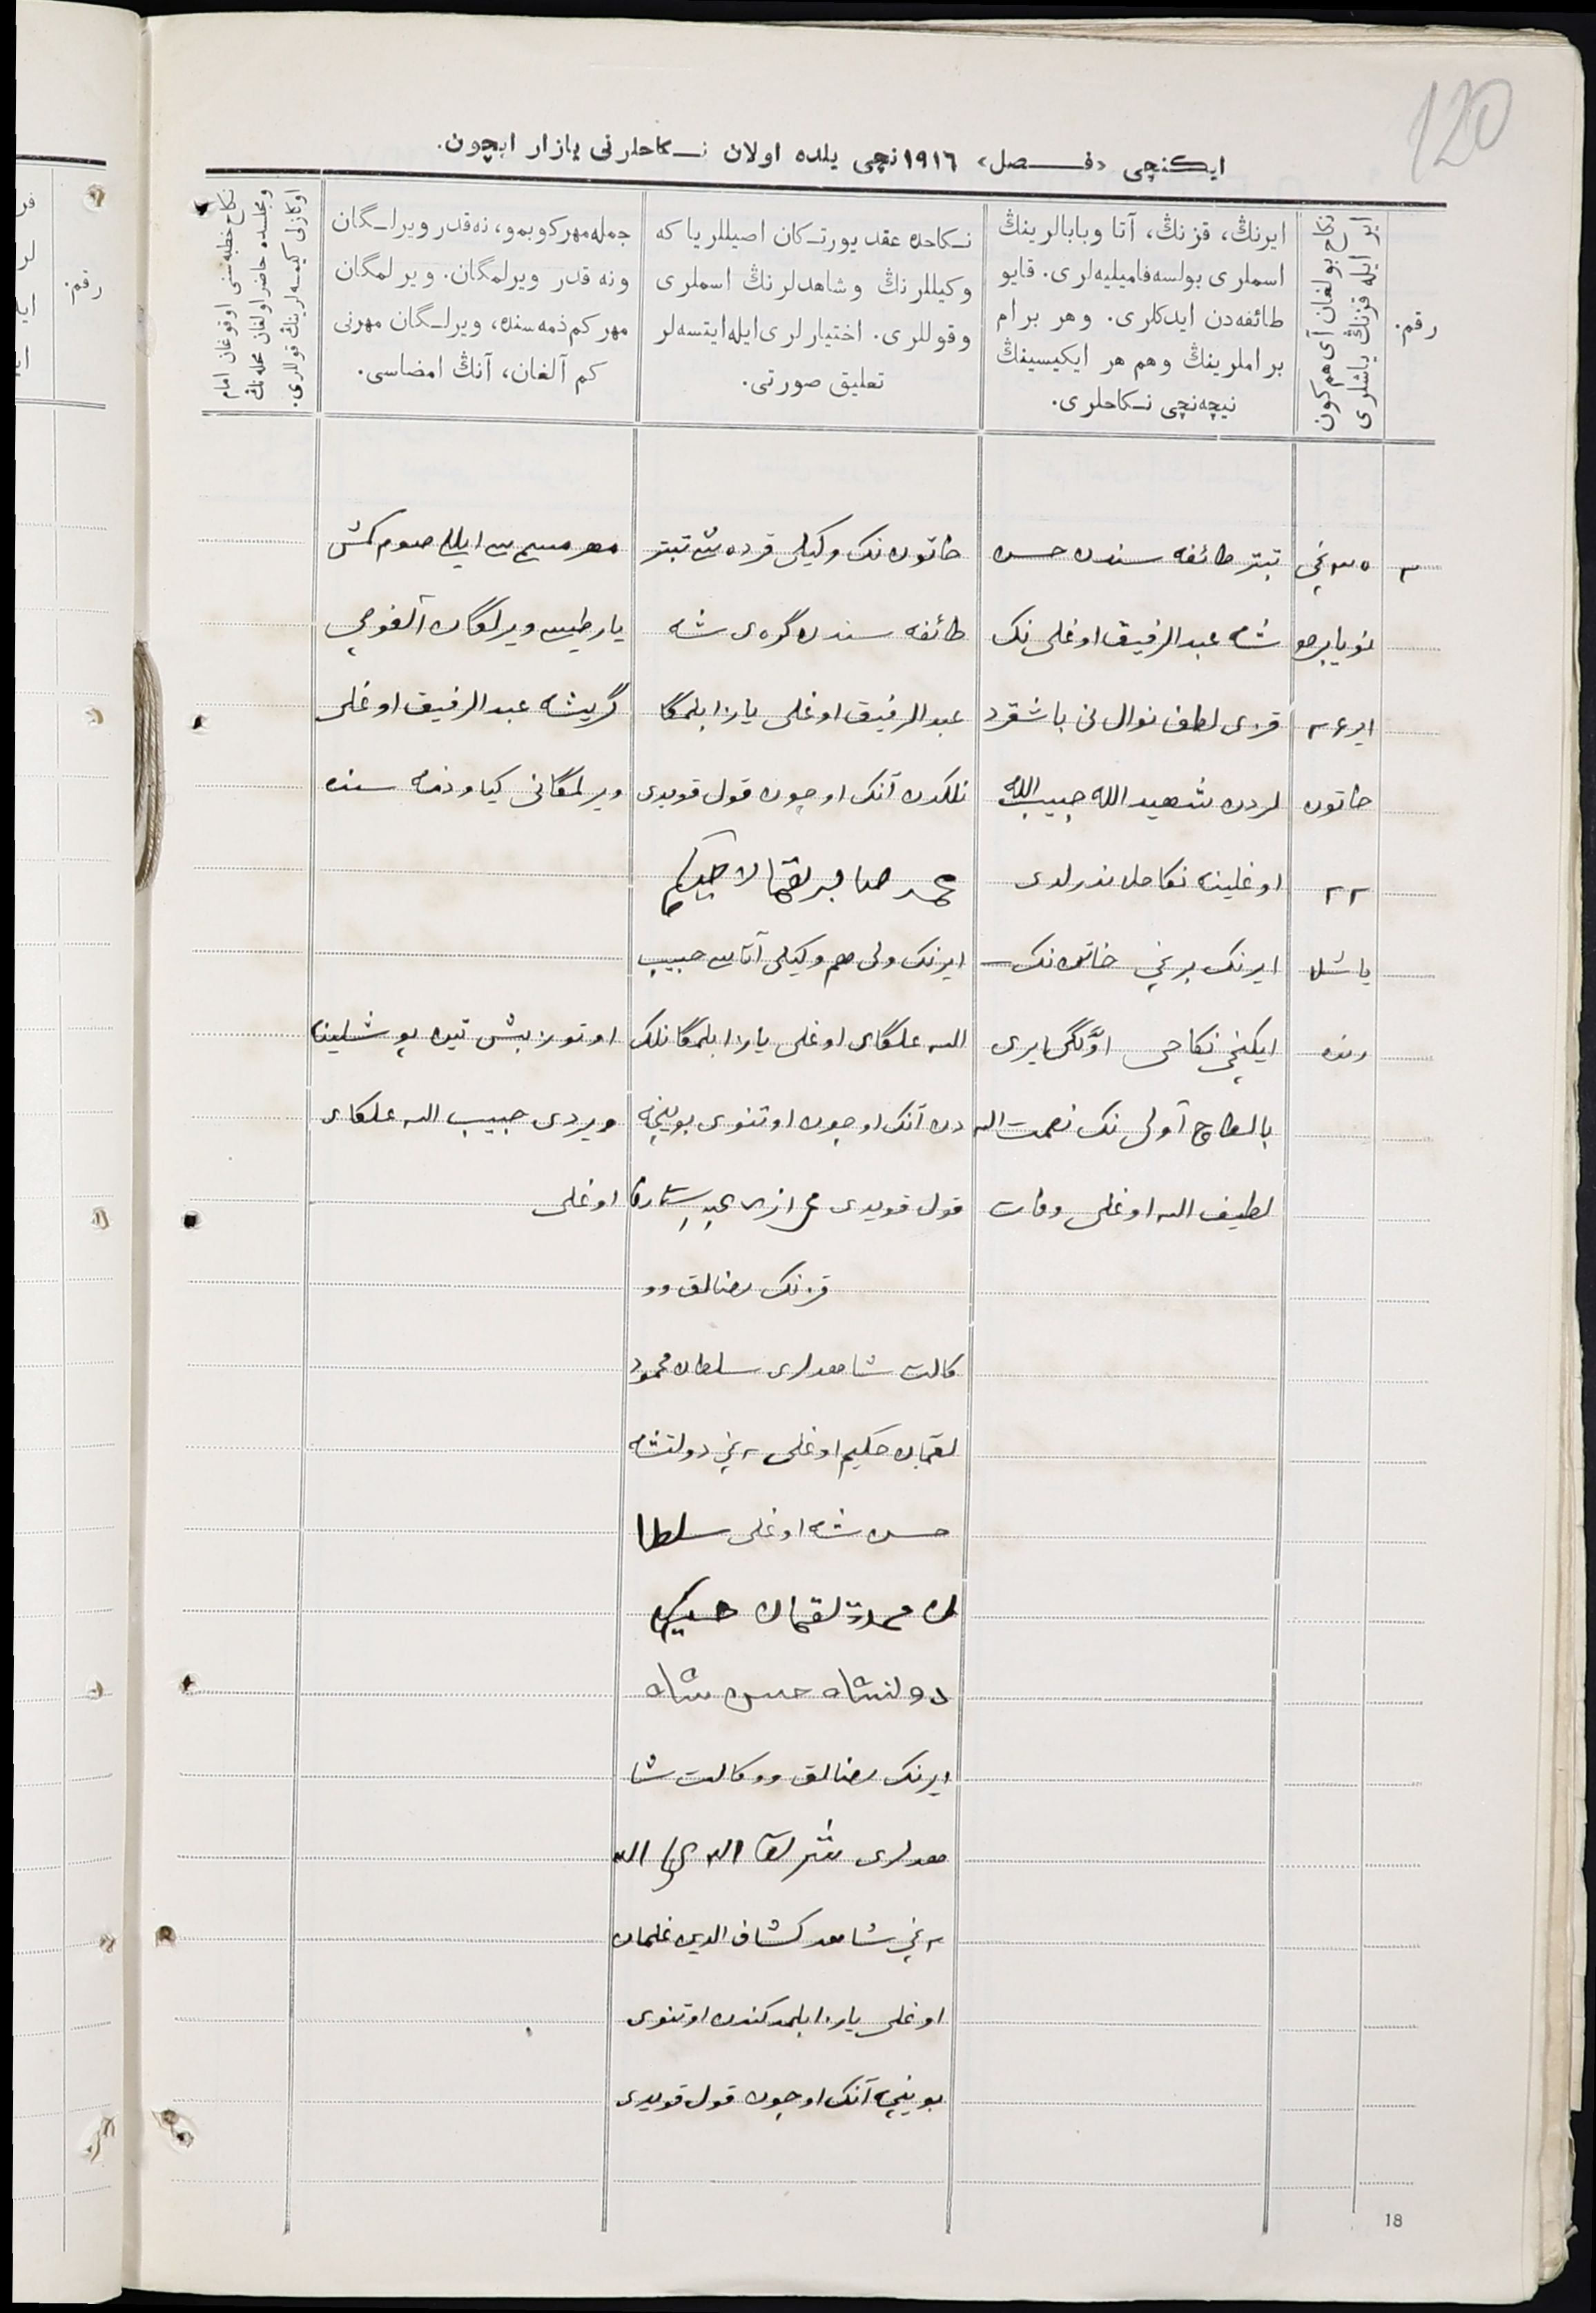 120
ایکنچی «فـصل» ١٩١٦نچی یلده اولان نـکاحلرنی یازار ایچون.
رقم.
نکاح بولغان آی هم کون
ایر ایله قزنڭ یاشلری
ایرنڭ، قزنڭ، آتا وبابالرینڭ
اسملری بولسه فامیلیه‌لری. قایو
طائفه‌دن ایدکلری. وهر برام
براملرینڭ وهم هر ایکیسینڭ
نیچه‌نچی نـکاحلری.
نـکاحده عقد یورتـکان اصیللریا که
وکیللرنڭ وشاهدلرنڭ اسملری
وقوللری. اختیارلری‌ایله‌ایتسه‌لر
تعلیق صورتی.
جمله‌مهرکوبمو، نه‌قدر ویرلـگان
ونه قدر ویرلمگان. ویرلمگان
مهرکم ذمه‌سنده، ویرلـگان مهرنی
کم آلغان، آنڭ امضاسی.
نکاح خطبه‌سنی اوقوغان امام
ومجلسده حاضر اولغان محله‌نڭ
اوکازلی کیمسه‌لرینڭ قوللری.
٢
٣٥ نچی
نویابرهو
ایر ٢٤
خاتون
٢٢
یاشلا
رنده
تبتر طائفه سندن حسن
شاه عبدالرفیق اوغلی نک
قزی لطف نوال نی باشقرد
لردن شهید الله حبیب الله
اوغلینه نکاحلندرلدی
ایرنک برنچی خاتوننک
ایکنچی نکاحی اوّلگی ایری
بالطاچ آولی نک نعمت الله
لطیف الله اوغلی وفات
خاتون نک وکیلی قرده شی تبتر
طائفه سندن گره ی شه
عبدالرفیق اوغلی یازا بلمگا
نلکدن آنک اوچون قول قویدی
محمد صابر لقمان
ایرنک ولی هم وکیلی آتاسی حبیب
الله علگای اوغلی یازا بلمگانلک
دن آنک اوچون اوتنوی بوینچه
قول قویدی
قزنک رضالق وو
کالت شاهدلری سلطان محمود
لقمان حکیم اوغلی ٢نچی دولتشه
حسن شه اوغلی سلطا
ن محمود لقمان
دولتشاه حسن شاه
ایرنک رضالق ووکالت شا
هدلری
٢نچی شاهد کشاف الدین غلمان
اوغلی یازا بلمدکندن اوتنوی
بوینچه آنک اوچون قول قویدی
مهر مسمی سی ایللی صوم کمش
یارطیسی ویرلگان آلغوچی
گریشه عبدالرفیق اوغلی
ویرلمگانی کیاو ذمه سنده
اوتوز بیش تین پوشلینا
ویردی حبیب الله علگای
اوغلی
18